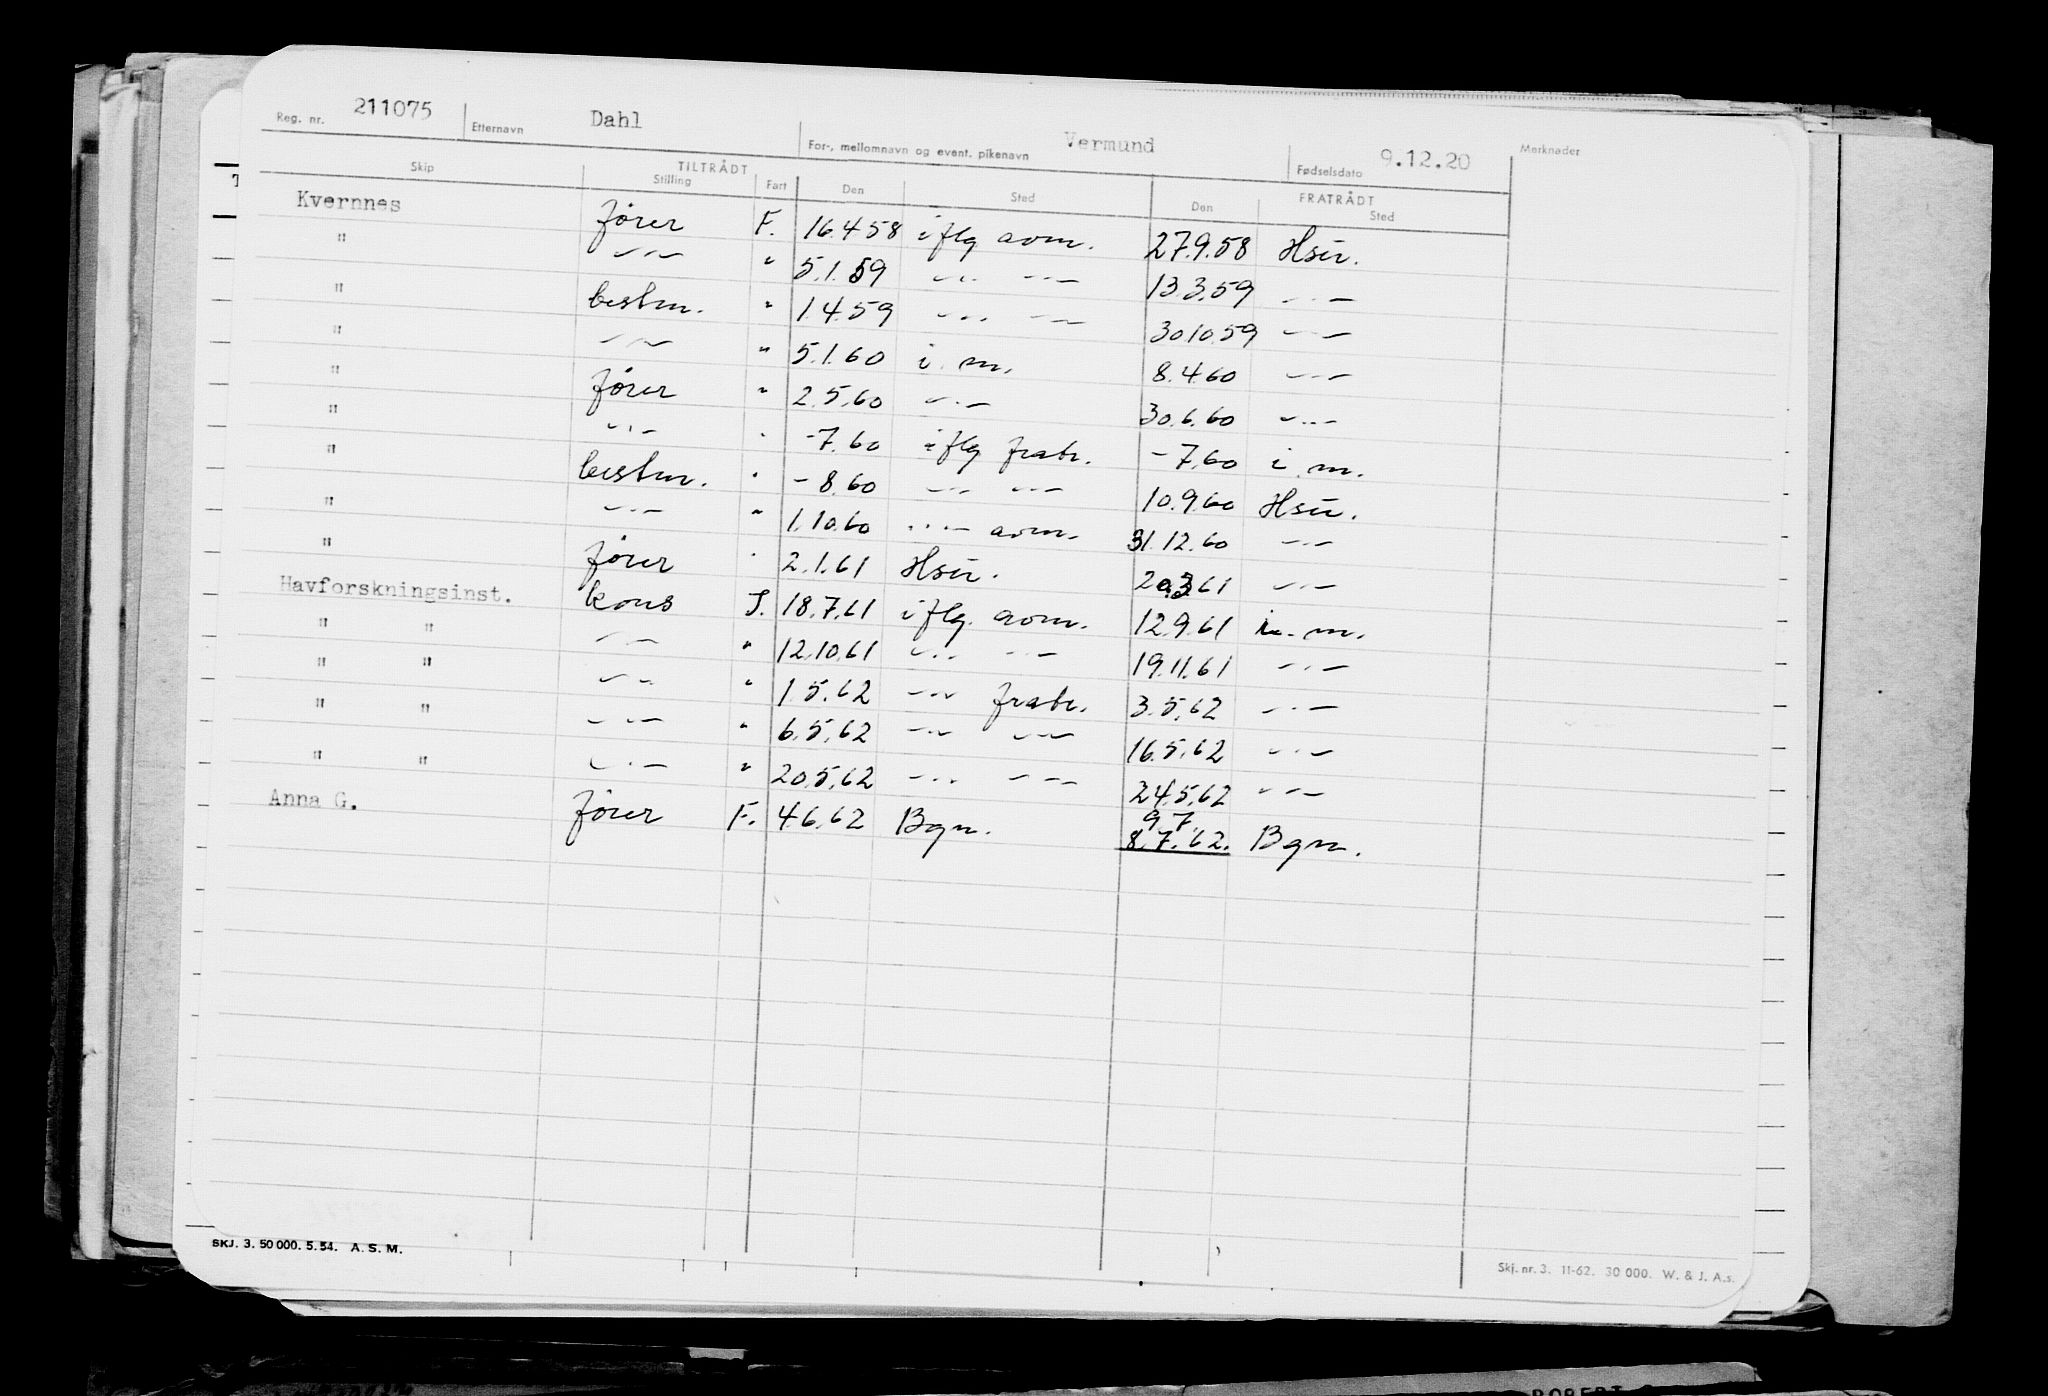 Reg. nr. 211075 Etternavn Dahl For-, mellomnavn og event. pikenavn Vermund Fødselsdato 9.12.20 Merknader
TILTRÅDT FRATRÅDT
Skip Stilling Fart Den Sted Den Sted
Kvernnes fører F. 16.4.58 iflg avm. 27.9.58 Hsu.
" -"- " 5.1.59 -"- -"- 13.3.59 -"-
" bestm. " 1.4.59 -"- -"- 30.10.59 -"-
" -"- " 5.1.60 i.m. 8.4.60 -"-
" fører " 2.5.60 -"- 30.6.60 -"-
" -"- " -7.60 iflg fratr. -7.60 i.m.
" bestm. " -8.60 -"- -"- 10.9.60 Hsu.
" -"- " 1.10.60 -"- avm. 31.12.60 -"-
" fører " 2.1.61 Hsu. 20.3.61 -"-
Havforskningsinst. kons S. 18.7.61 iflg. avm. 12.9.61 i.m.
" " -"- " 12.10.61 -"- -"- 19.11.61 -"-
" " -"- " 1.5.62 -"- fratr. 3.5.62 -"-
" " -"- " 6.5.62 -"- -"- 16.5.62 -"-
" " -"- " 20.5.62 -"- -"- 24.5.62 -"-
9.7.
Anna G. fører F. 4.6.62 Bgn. 8.7.62. Bgn.
SKJ. 3. 50 000. 5. 54. A. S. M.
Skj. nr. 3. 11-62. 30 000. W. & J. A.s.